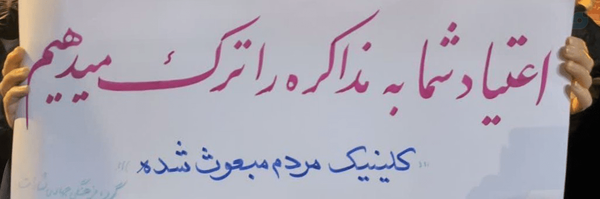 اعتیاد شما به مذاکره را ترک میدهیم
کلینیک مردم مبعوث شده